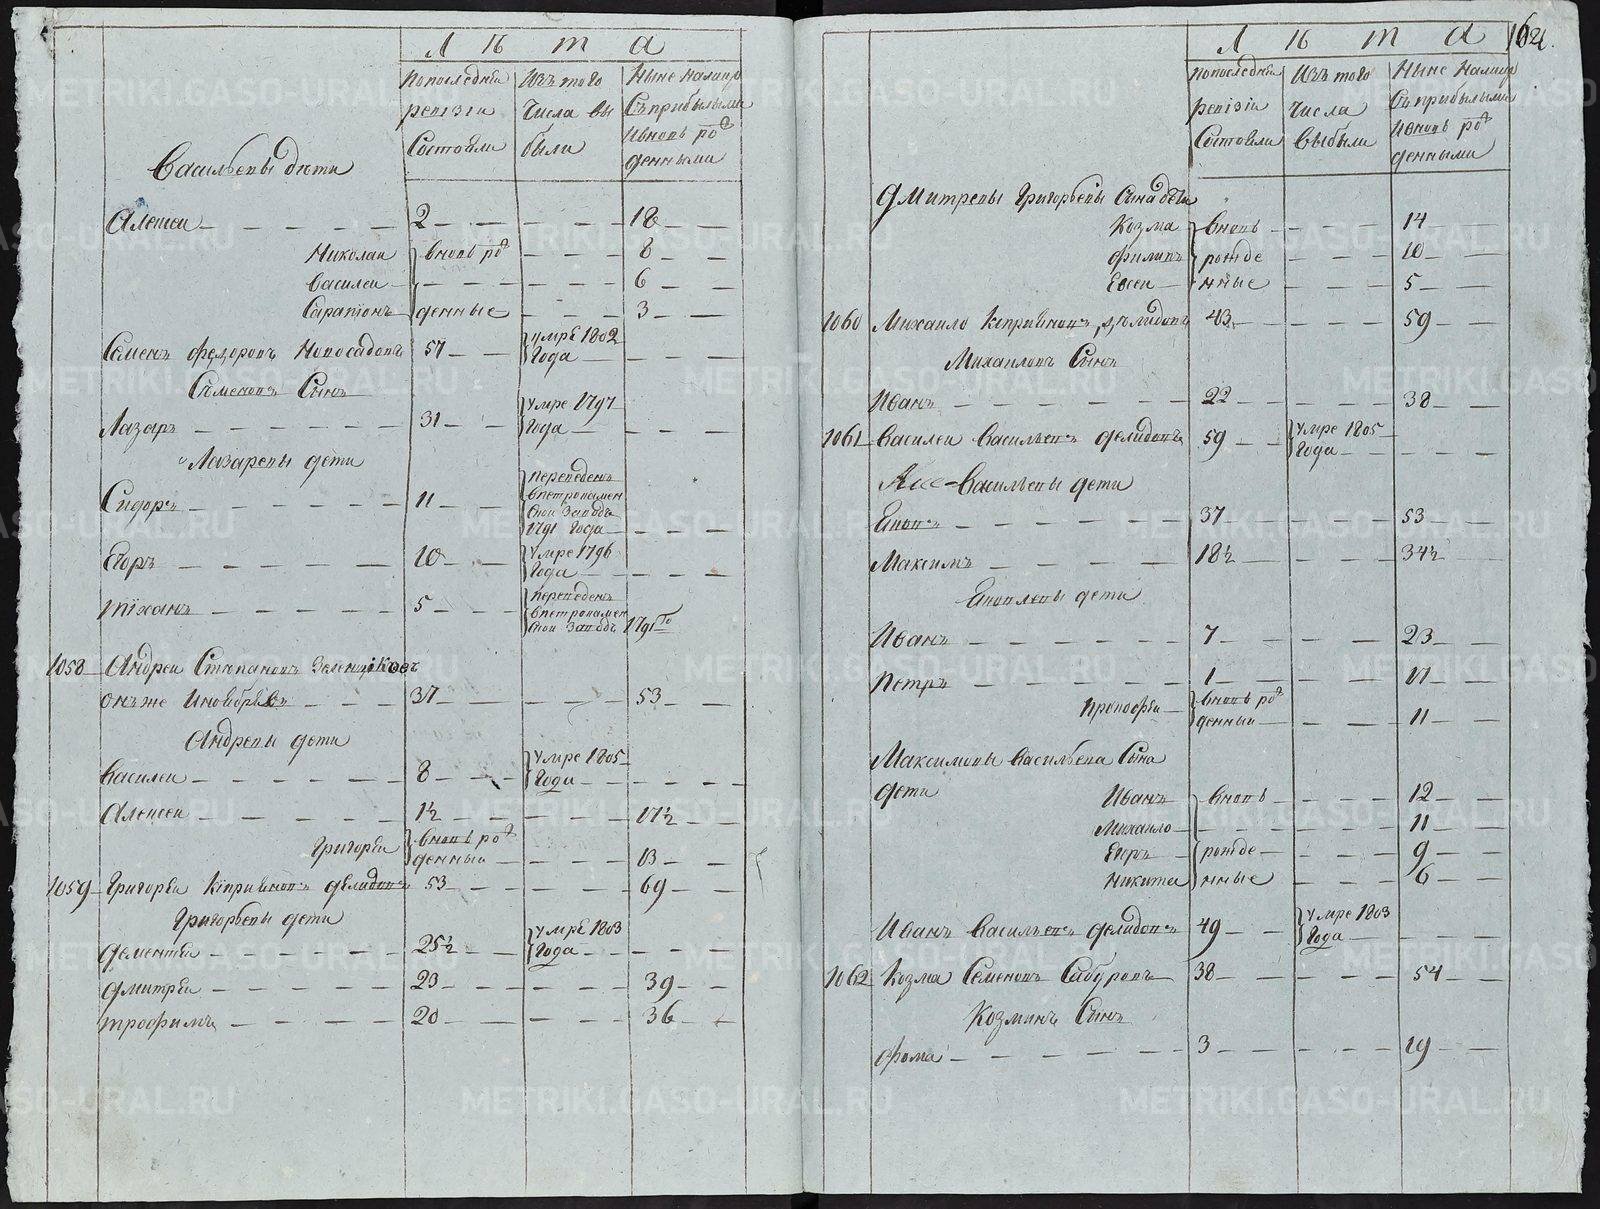 Л ѣ т а
Попоследнеи ревізіи Состояли
Изътого Числа вы были
Ныне Налицо Съприбылыми ивновь рож денными
Васильевы дѣти
Алексеи 2 18
Николаи вновь рож 8
Василеи 6
Сарапіонъ денные 3
Семенъ Федоровъ Новосадовъ 57 умре 1802 Года
Семеновъ Сынъ
Лазарь 31 умре 1797 Года
Лазаревы дети
Сидоръ 11 переведенъ впетрокамен Скои Заводъ 1791 Года
Егоръ 10 умре 1796 Года
Тіханъ 5 переведенъ впетрокамен Скои Заводъ 1791 го
1058 Андреи Степановъ Зеленщіковъ
онъже Иноѣбрѣевъ 37 53
Андревы дети
Василеи 8 умре 1805 Года
Алексеи 1½ 17½
Григореи вновь рож денныи 13
1059 Григореи Кіприяновъ Делидовъ 53 69
Григорьевы дети
Дементеи 25½ умре 1803 Года
Дмитреи 23 39
Трофимъ 20 36
162
Л ѣ т а
Попоследнеи ревізіи Состояли
Изътого Числа выбыли
Ныне Налицо Съприбылыми ивновь рож денными
Дмитревы Григорьевы Сына дѣти
Козма вновь 14
Филипъ рожде 10
Евсеи нные 5
1060 Михаило Кіприяновъ Дѣлидовъ 43 59
Михаиловъ Сынъ
Иванъ 22 38
1061 Василеи Васильевъ Делидовъ 59 умре 1805 Года
Васильевы дети
Григореи 37 53
Максимъ 18½ 34½
дети
Иванъ 7 23
Петръ 1 17
Прокофеи вновь рож денныи 11
Максимовы Васильева Сына
дети Иванъ вновь 12
Михаило 11
Егоръ рожде 9
Никита нные 6
Иванъ Васильевъ Делидовъ 49 умре 1803 Года
1062 Козма Семеновъ Сабуровъ 38 54
Козминъ Сынъ
Фома 3 19